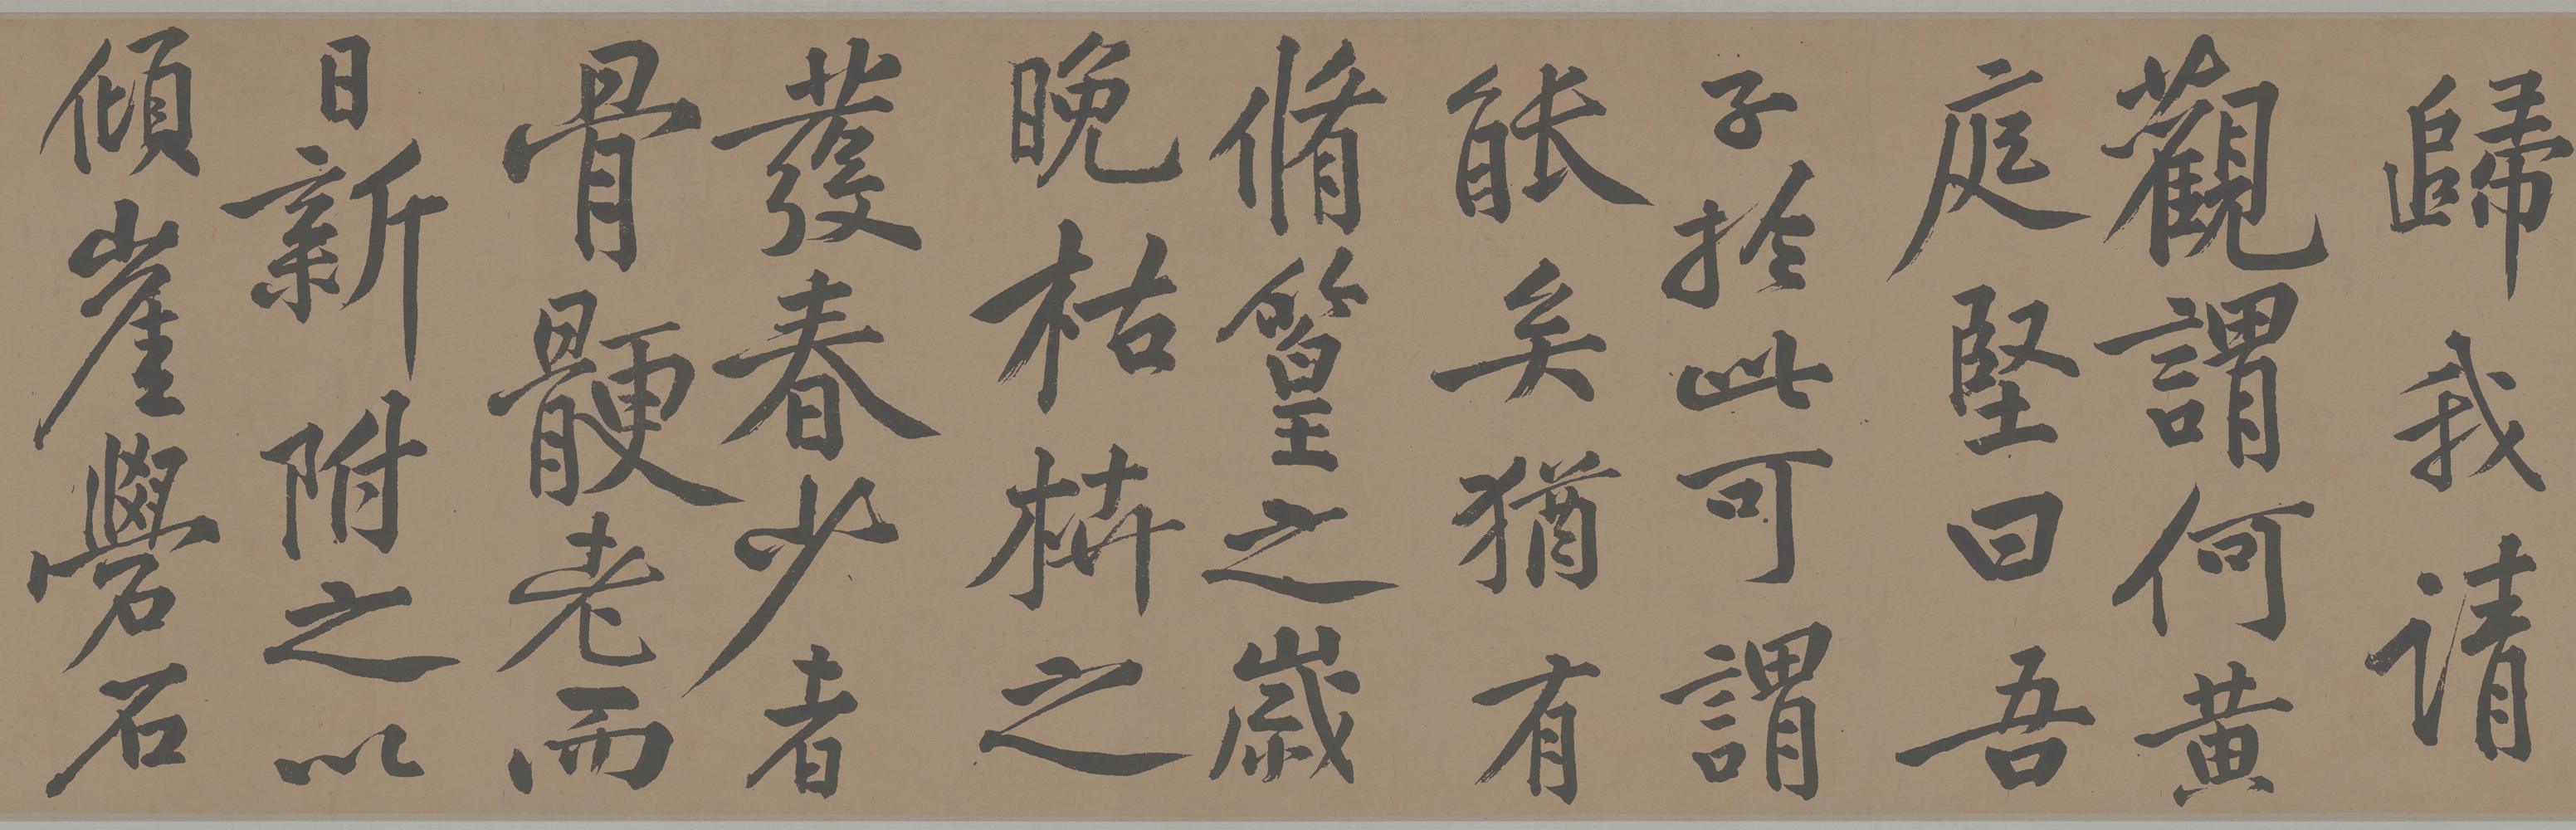 歸我請
觀謂何黃
庭堅曰吾
子於此可謂
能矣猶有
脩篁之歲
晚枯枿之
發春少者
骨骾老而
日新附之以
傾崖礐石